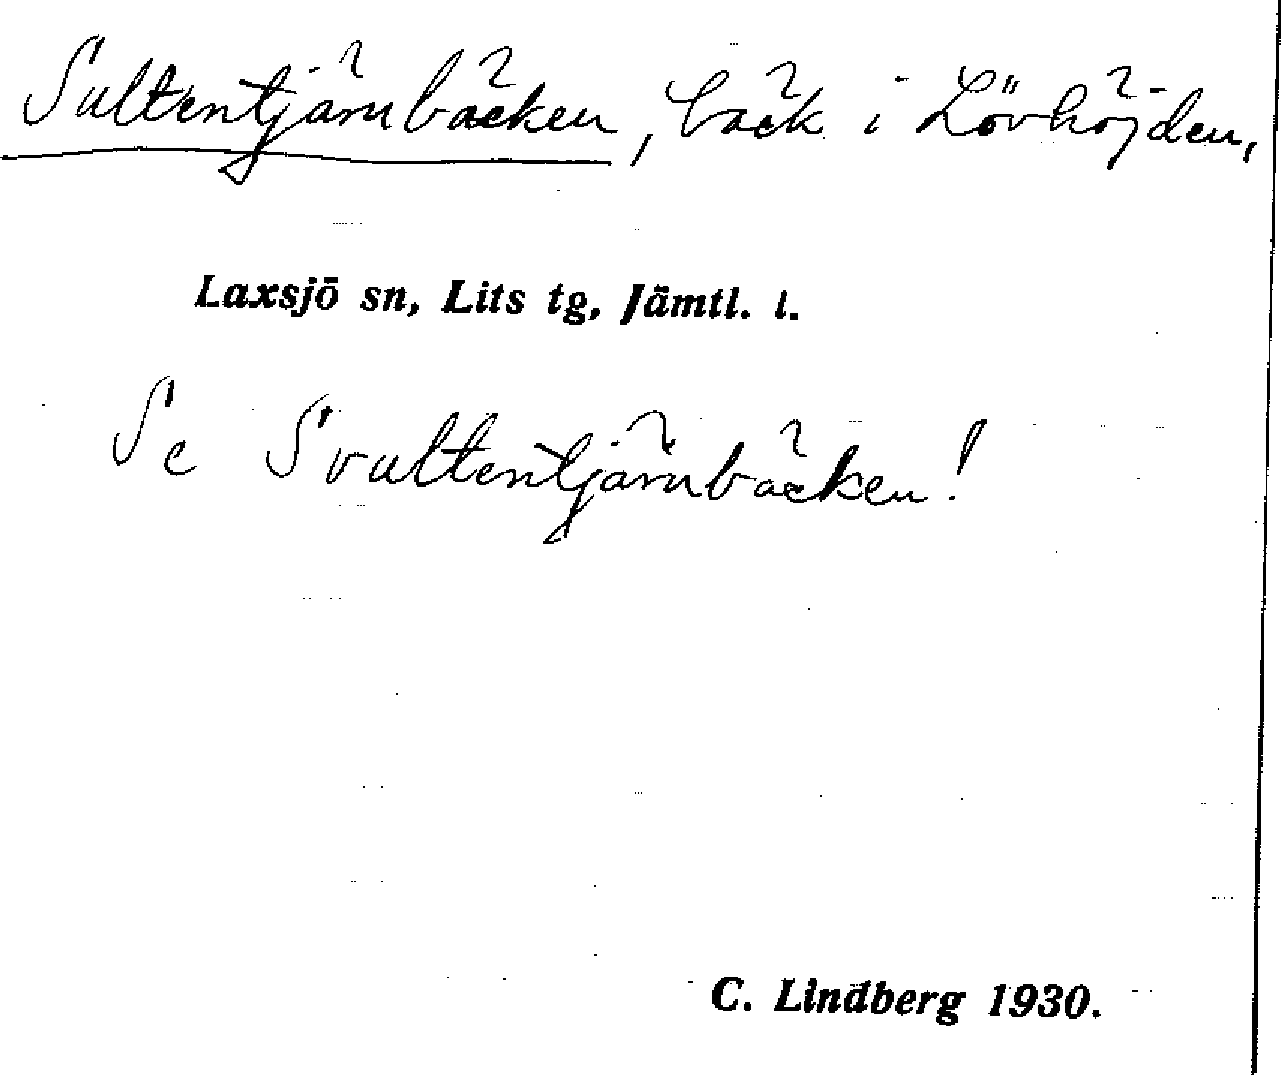 Sultentjärnbäcken, bäck i Lövhöjden,
Laxsjö sn, Lits tg, Jämtl. l.
Se Svultentjärnbäcken!
C. Lindberg 1930.